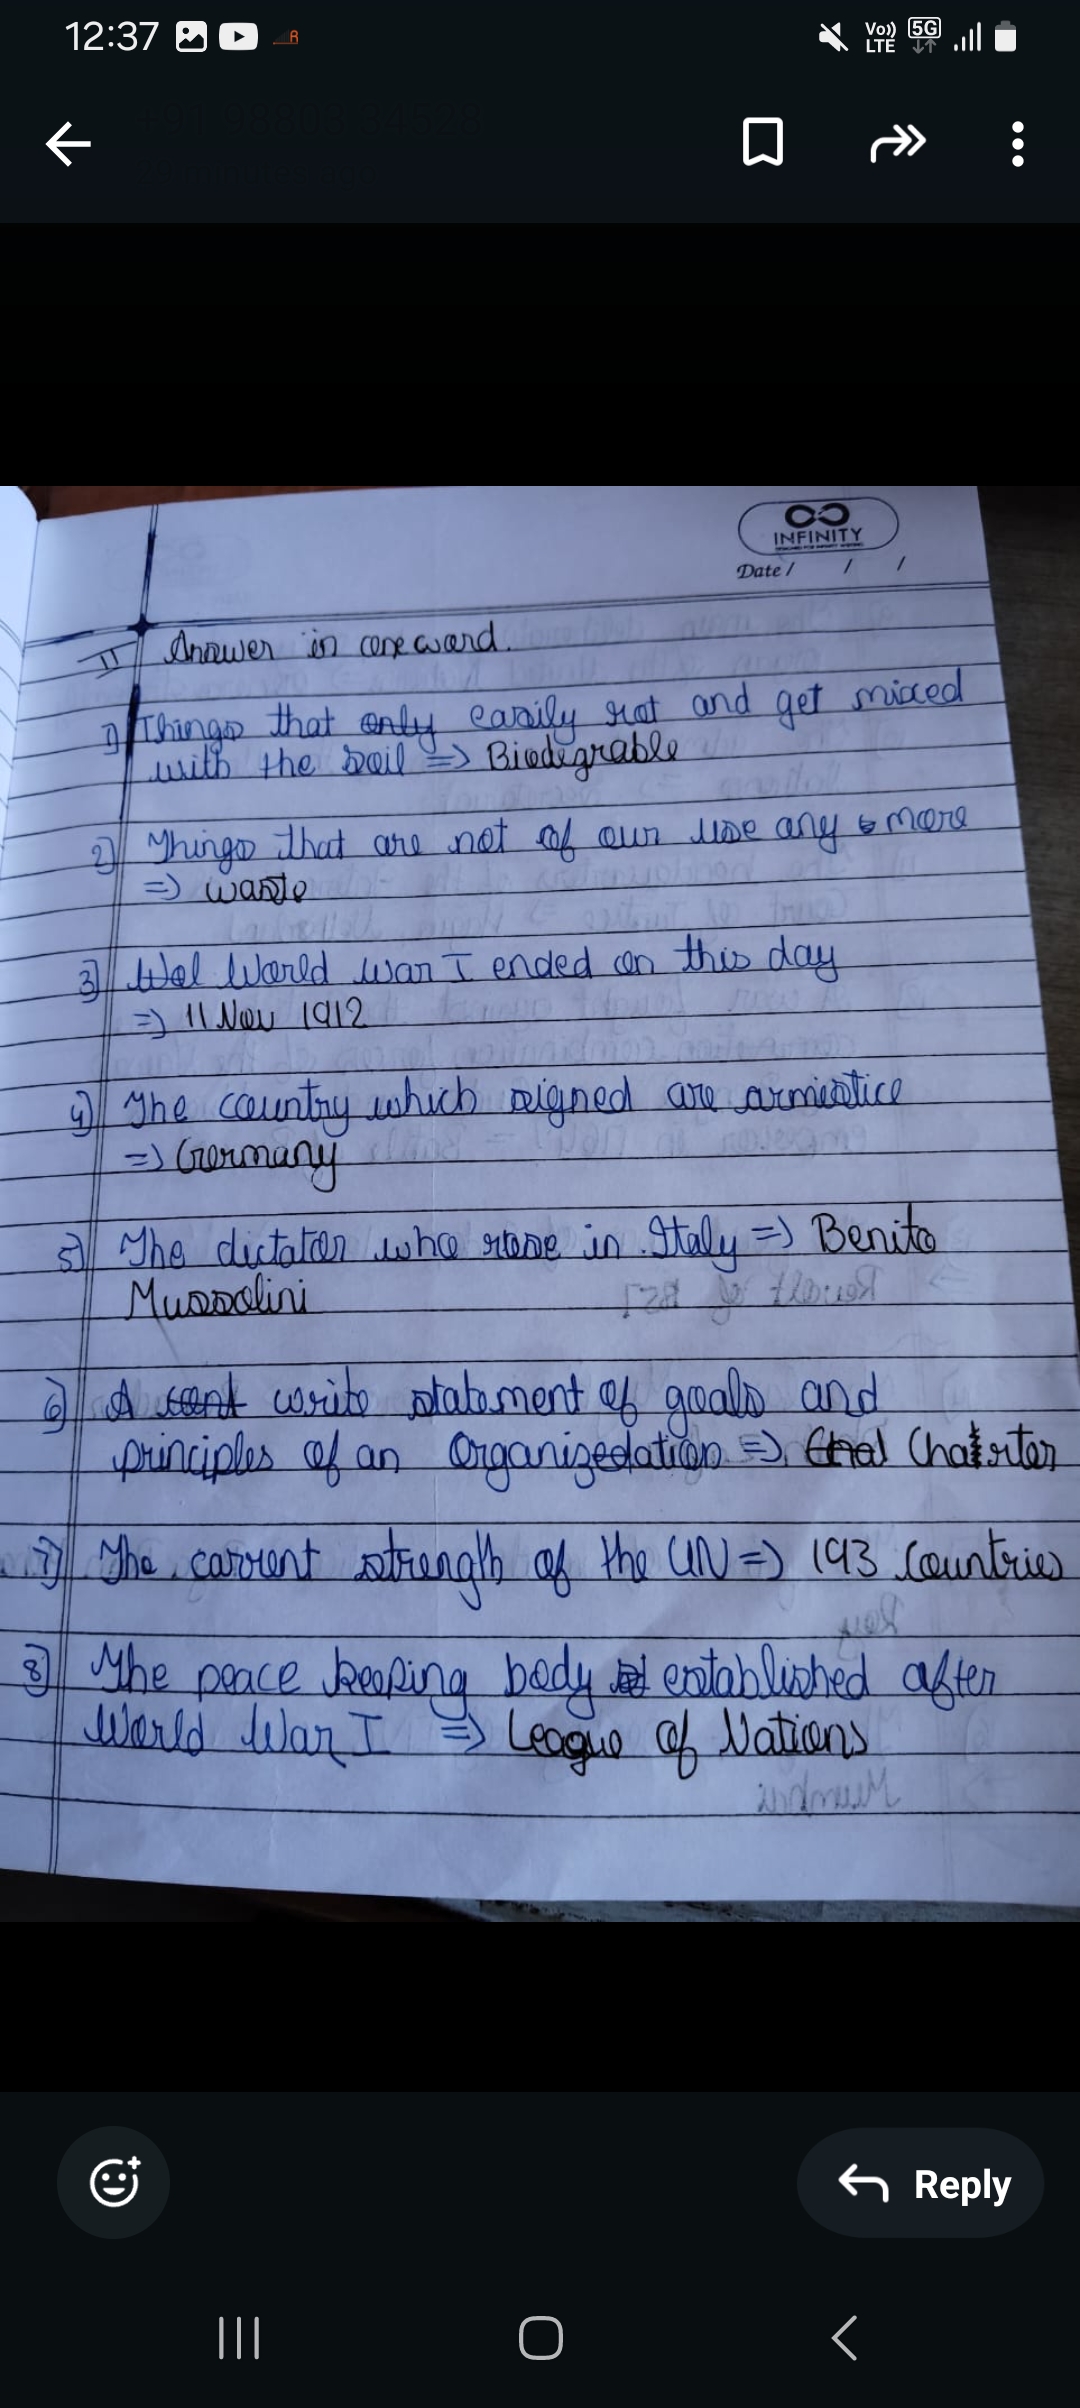 12:37
Vo)) LTE 5G
INFINITY
Date / / /
II Answer in one word.
1) Things that only easily rot and get mixed
with the soil => Biodegrable
2) Things that are not of our use any more
=> waste
3) World war I ended on this day
=> 11 Nov 1912
4) The country which signed are armistice
=> Germany
5) The dictator who rose in Italy => Benito
Mussolini
6) A write statement of goals and
principles of an Organizedation => Charter
7) The current strength of the UN => 193 Countries
8) The peace keeping body established after
World War I => League of Nations
Reply